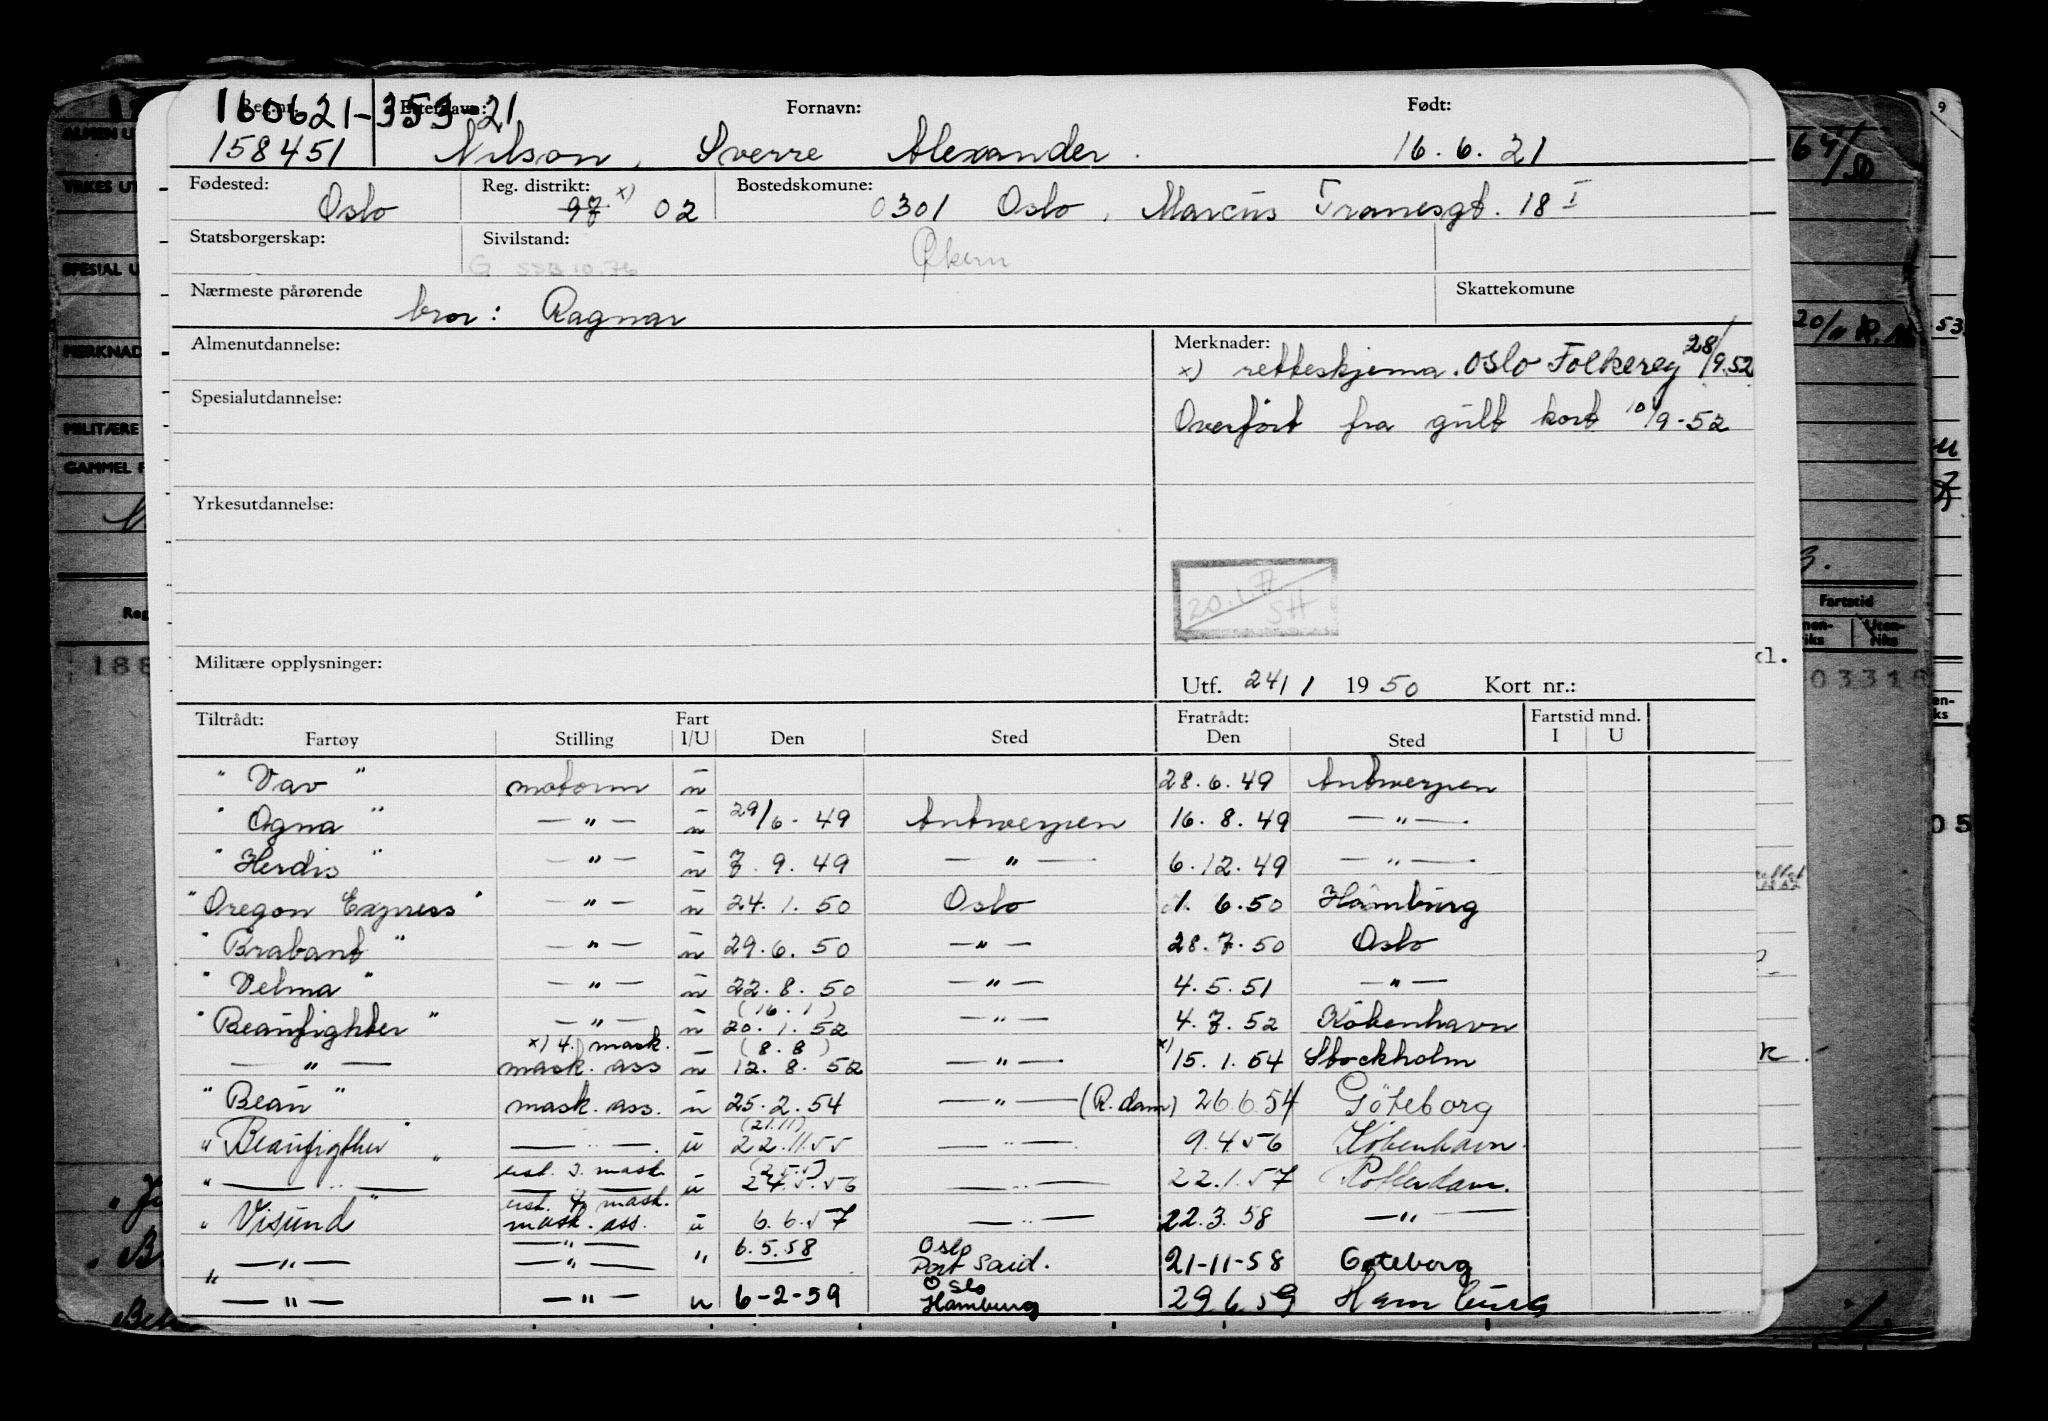 160621-353 21
Reg.nr. Etternavn: Fornavn: Født:
158451 Nilson, Sverre Alexander. 16.6.21
Fødested: Reg. distrikt: x) Bostedskomune:
Oslo 97 02 0301 Oslo, Marcus Tranesgt. 18 I
Statsborgerskap: Sivilstand:
G SSB 10.76 Økern
Nærmeste pårørende Skattekomune
bror: Ragnar
Almenutdannelse: Merknader:
x) retteskjema. Oslo Folkereg 28/9.52
Spesialutdannelse:
Overført fra gult kort 10/9-52
Yrkesutdannelse:
20.1.77
SH
Militære opplysninger:
Utf. 24/1 1950 Kort nr.:
Tiltrådt: Fart Fratrådt: Fartstid mnd.
Fartøy Stilling I/U Den Sted Den Sted I U
"Vav" motorm u 28.6.49 Antwerpen
"Ogna" — " — u 29/6-49 Antwerpen 16.8.49 — " —
"Herdis" — " — u 7.9.49 — " — 6.12.49 — " —
"Oregon Express" — " — u 24.1.50 Oslo 1.6.50 Hamburg
"Brabant" — " — u 29.6.50 — " — 28.7.50 Oslo
"Velma" — " — u 22.8.50 — " — 4.5.51 — " —
(16.1)
"Beaufighter" — " — u 20.1.52 — " — 4.7.52 København
x) 4. mask. (8.8)
— " — mask. ass u 12.8.52 — " — x) 15.1.54 Stockholm
"Beau" mask. ass. u 25.2.54 — " — (R.dam) 26.6.54 Göteborg
(21.11)
"Beaufigther" — " — u 22.11.55 — " — 9.4.56 København.
ust. 3. mask (25.5)
" — " — — " — u 24.5.56 — " — 22.1.57 Rotterdam.
ust. 4. mask.
"Visund" mask. ass. u 6.6.57 — " — 22.3.58 — " —
— " — Oslo
— " — — " — " 6.5.58 Port Said. 21-11-58 Göteborg
Oslo
— " — — " — u 6-2-59 Hamburg 29 6 59 Hamburg